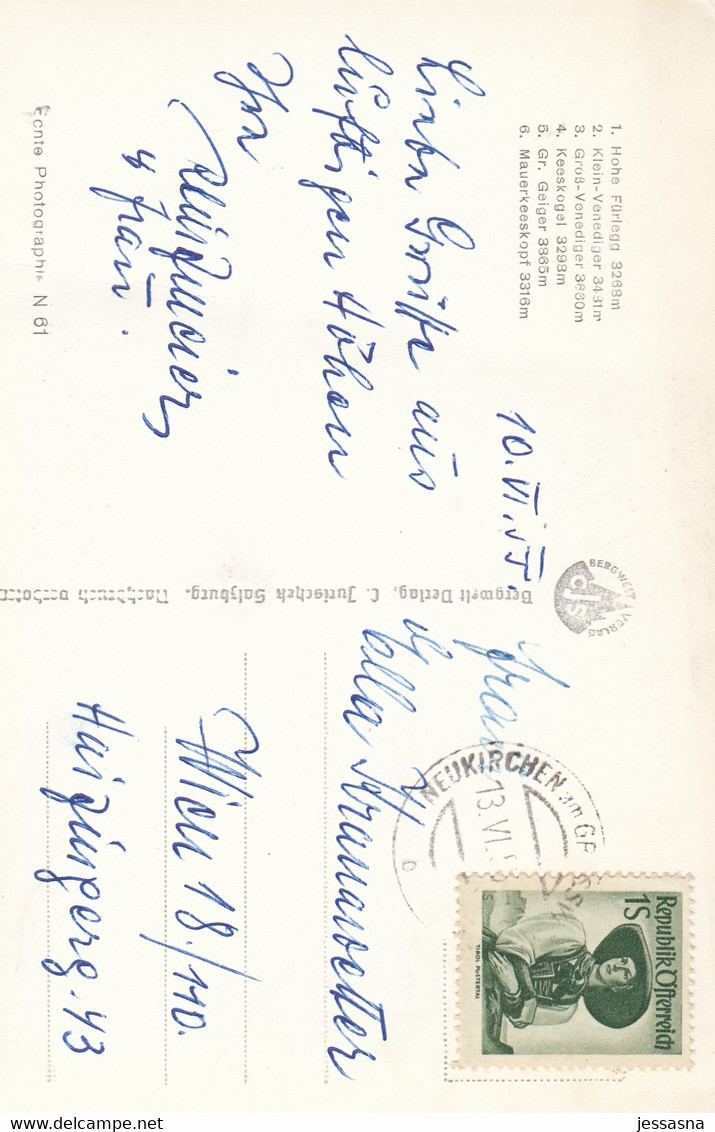 1. Hohe Fürlegg 3268m
2. Klein-Venediger 3481m
3. Groß-Venediger 3660m
4. Keeskogel 3298m
5. Gr. Geiger 3365m
6. Mauerkeeskopf 3316m
10. VI.
Liebe Grüße aus
luftigen Höhen
Ihr
u Frau.
Echte Photographie N 61
Bergwelt Verlag, C. Jurischek Salzburg. Nachdruck verboten
BERGWELT VERLAG
NEUKIRCHEN am GR
13. VI. 5
Republik Österreich
1S
TIROL PUSTERTAL
Frau
Ella Kranawetter
Wien 18./110.
Haizingerg. 43
jessasna